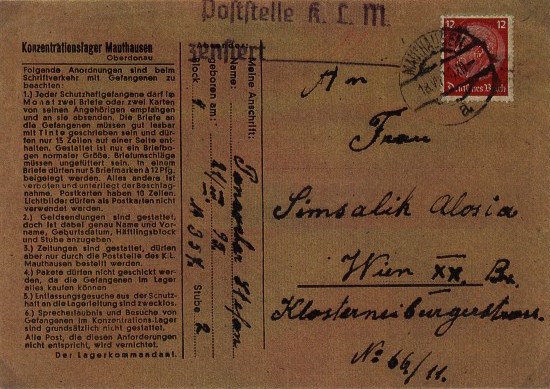 Poststelle K. L. M.
zensiert
Konzentrationslager Mauthausen
Oberdonau
Folgende Anordnungen sind beim
Schriftverkehr mit Gefangenen zu
beachten:
1.) Jeder Schutzhaftgefangene darf im
Monat zwei Briefe oder zwei Karten
von seinen Angehörigen empfangen
und an sie absenden. Die Briefe an
die Gefangenen müssen gut lesbar
mit Tinte geschrieben sein und dür-
fen nur 15 Zeilen auf einer Seite ent-
halten. Gestattet ist nur ein Briefbo-
gen normaler Größe. Briefumschläge
müssen ungefüttert sein. In einem
Briefe dürfen nur 5 Briefmarken à 12 Pfg.
beigelegt werden. Alles andere ist
verboten und unterliegt der Beschlag-
nahme. Postkarten haben 10 Zeilen.
Lichtbilder dürfen als Postkarten nicht
verwendet werden.
2.) Geldsendungen sind gestattet,
doch ist dabei genau Name und Vor-
name, Geburtsdatum, Häftlingsblock
und Stube anzugeben.
3.) Zeitungen sind gestattet, dürfen
aber nur durch die Poststelle des K.L.
Mauthausen bestellt werden.
4.) Pakete dürfen nicht geschickt wer-
den, da die Gefangenen im Lager
alles kaufen können
5.) Entlassungsgesuche aus der Schutz-
haft an die Lagerleitung sind zwecklos.
6.) Sprecherlaubnis und Besuche von
Gefangenen im Konzentrations-Lager
sind grundsätzlich nicht gestattet.
Alle Post, die diesen Anforderungen
nicht entspricht, wird vernichtet.
Der Lagerkommandant.
Meine Anschrift:
Name: Stefan
geboren am:
Block 4 Stube 2
12 12
Deutsches Reich
MAUTHAUSEN
a
An
Frau
Simsalik Alosia
Wien XX. Bz.
Klosterneiburgerstrass.
No 66/11.